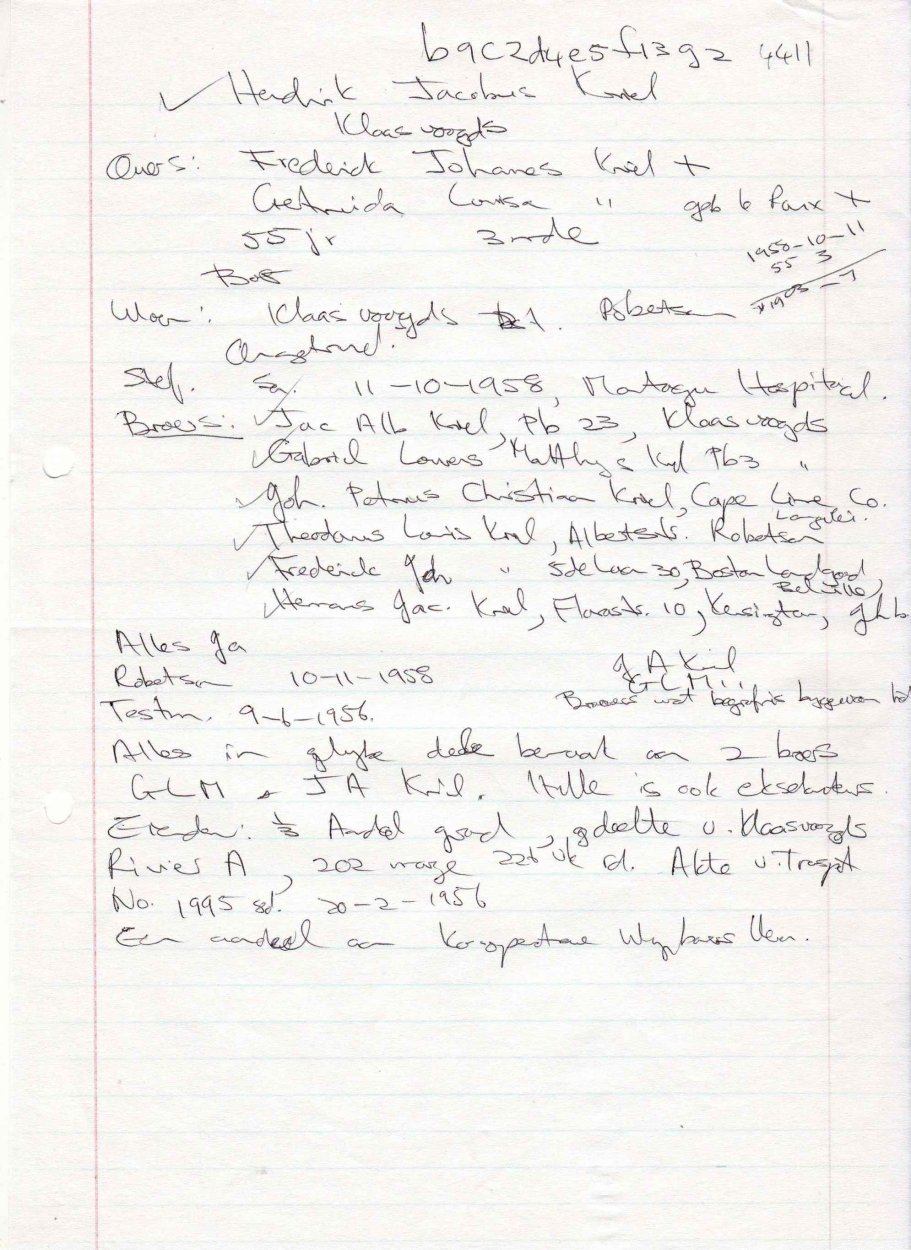 b9c2d4e5f13g2 4411
Hendrik Jacobus Kriel
Klaasvoogds
Ouers: Frederick Johanes Kriel +
Gertruida Louisa " geb le Roux +
55 jr 3 mde
1958-10-11
55 3
*1903-7
Boer
Woon: Klaasvoogds 1. Robertson
Ongetroud.
Sterf. Sa. 11-10-1958, Montagu Hospitaal.
Broers: Jac Alb Kriel, Pb 23, Klaasvoogds
Gabriel Lowers Matthys Kriel Pb3 "
Joh. Petrus Christian Kriel, Cape Lime Co.
Langvlei.
Theodorus Louis Kriel, Albertstr. Robertson
Frederick Joh " 5de Laan 30, Boston Landgoed,
Belville,
Hermanus Jac. Kriel, Florastr. 10, Kensington, Jhb
Alles Ja
Robertson 10-11-1958
J A Kriel
G L M "
Broers wat begrafnis bygewoon het
Testm. 9-6-1956.
Alles in gelyke dele bemaak aan 2 broers
GLM & J A Kriel. Hulle is ook eksekuteurs.
Eiendom: ⅓ Aandeel grond, gedeelte v. Klaasvoogds
Rivier A, 202 morge 226 vk rd. Akte v. Trspt
No. 1995 gd. 20-2-1956
Een aandeel aan Koöperatiewe Wynbouers Ver.